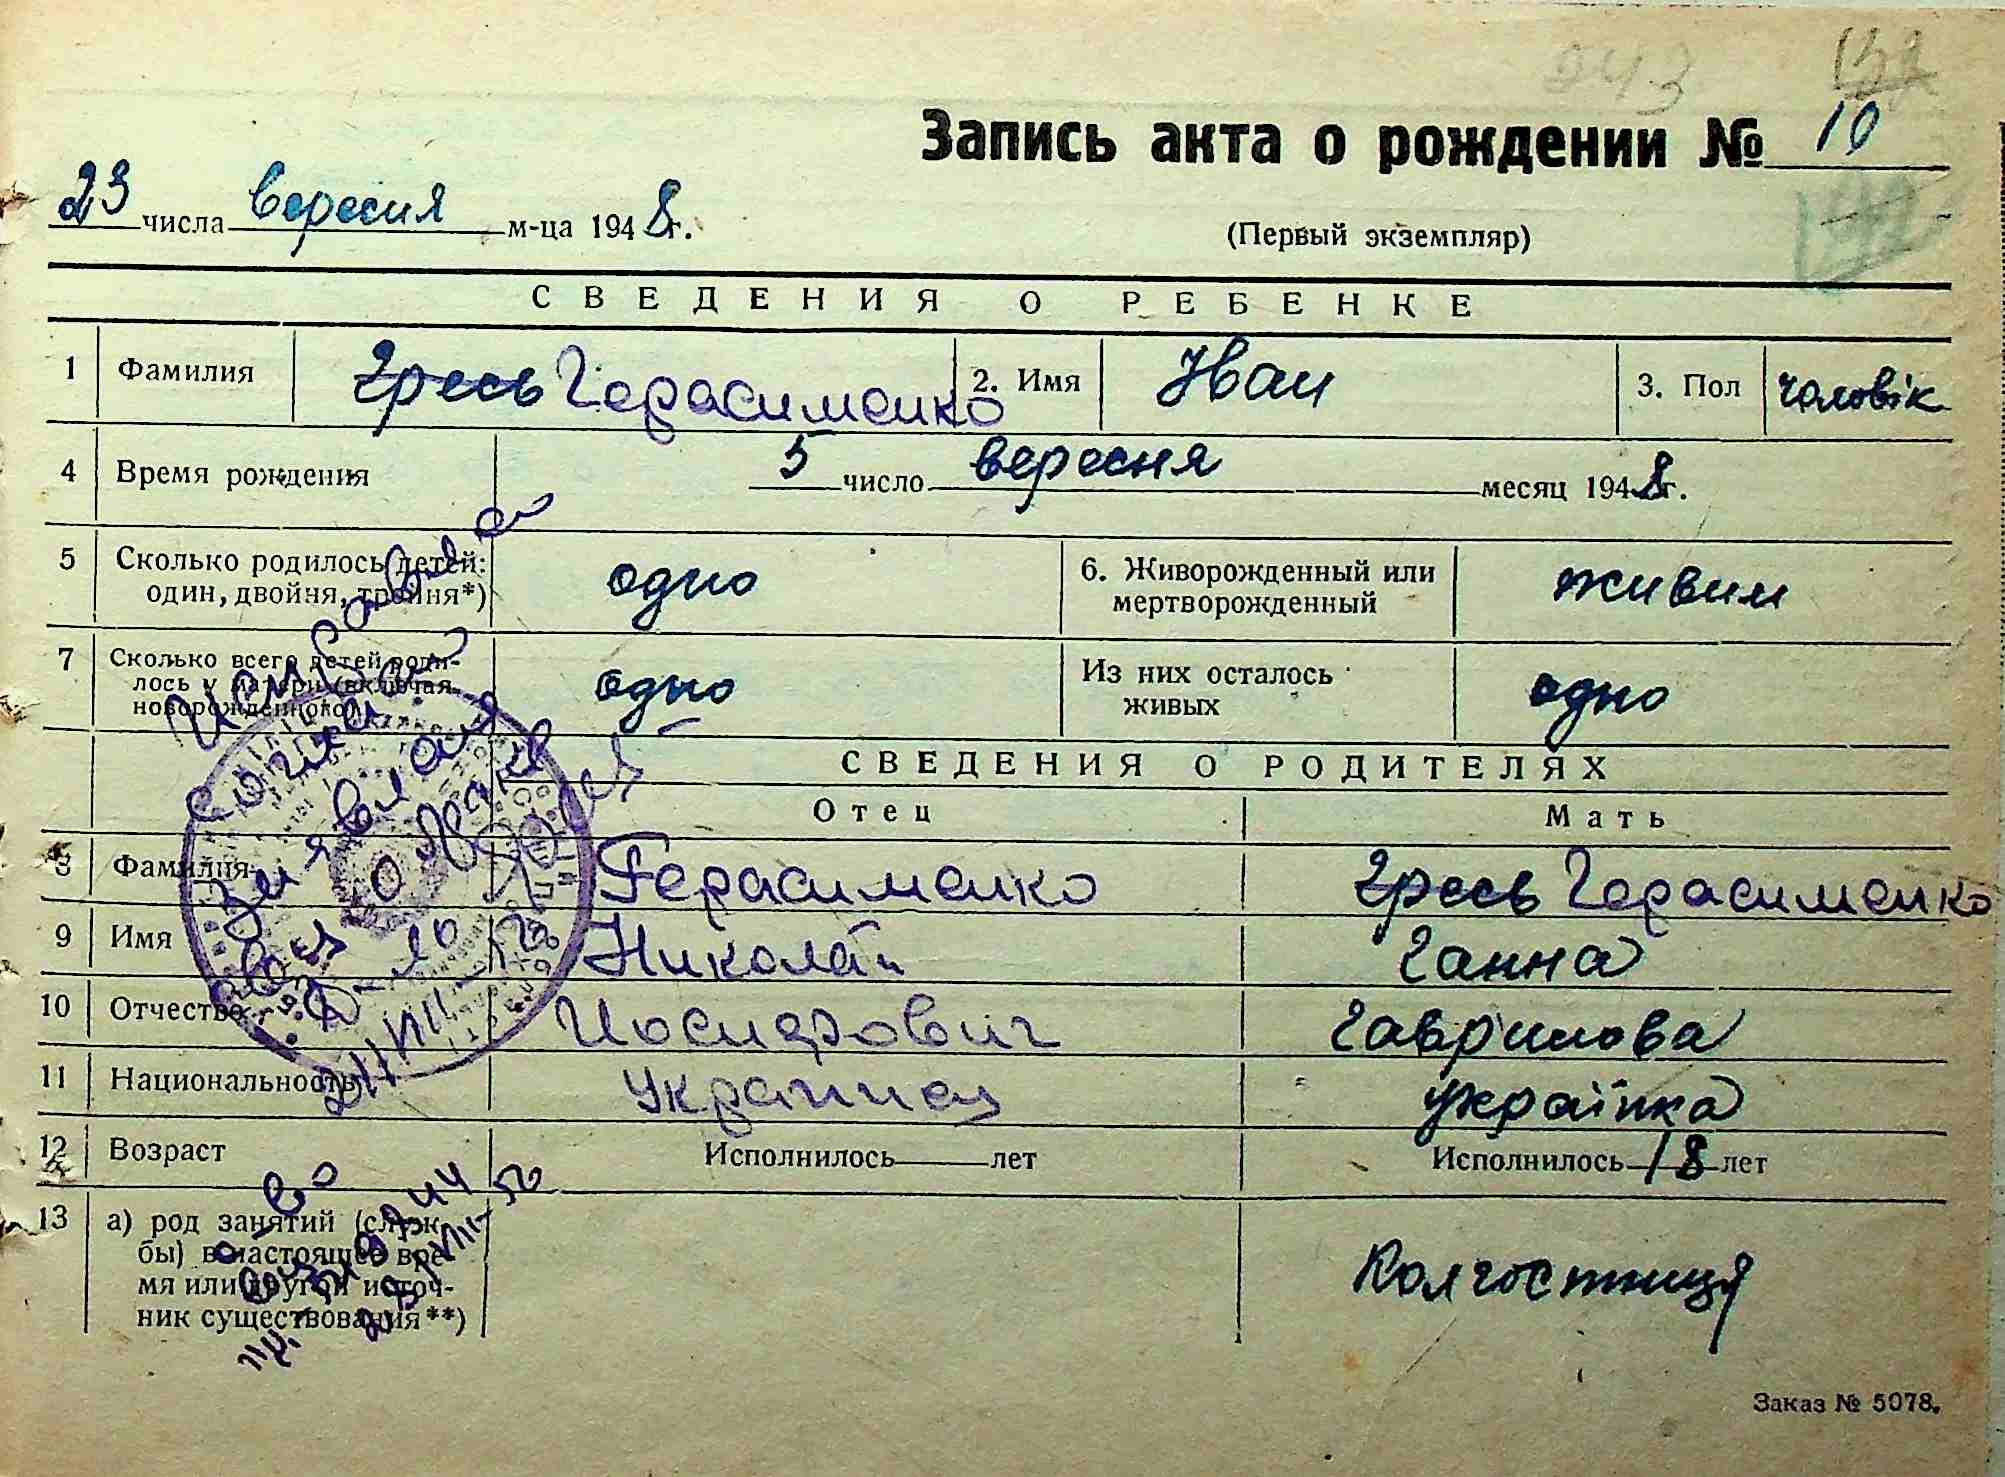 243 132
Запись акта о рождении № 10
23 числа вересня м-ца 1948 г.
(Первый экземпляр)
СВЕДЕНИЯ О РЕБЕНКЕ
1 Фамилия Гресь Герасименко 2. Имя Іван 3. Пол чоловік
4 Время рождения 5 число вересня месяц 1948 г.
5 Сколько родилось детей: один, двойня, тройня*) одно 6. Живорожденный или мертворожденный живим
7 Сколько всего детей родилось у матери (включая новорожденного) одно Из них осталось живых одно
СВЕДЕНИЯ О РОДИТЕЛЯХ
Отец Мать
8 Фамилия Герасименко Гресь Герасименко
9 Имя Николай Ганна
10 Отчество Иосифович Гаврилова
11 Национальность Украинец українка
12 Возраст Исполнилось лет Исполнилось 18 лет
13 а) род занятий (службы) в настоящее время или другой источник существования**) Колгостниця
Исправлен
согласно
заявления
о браке
Заказ № 5078.